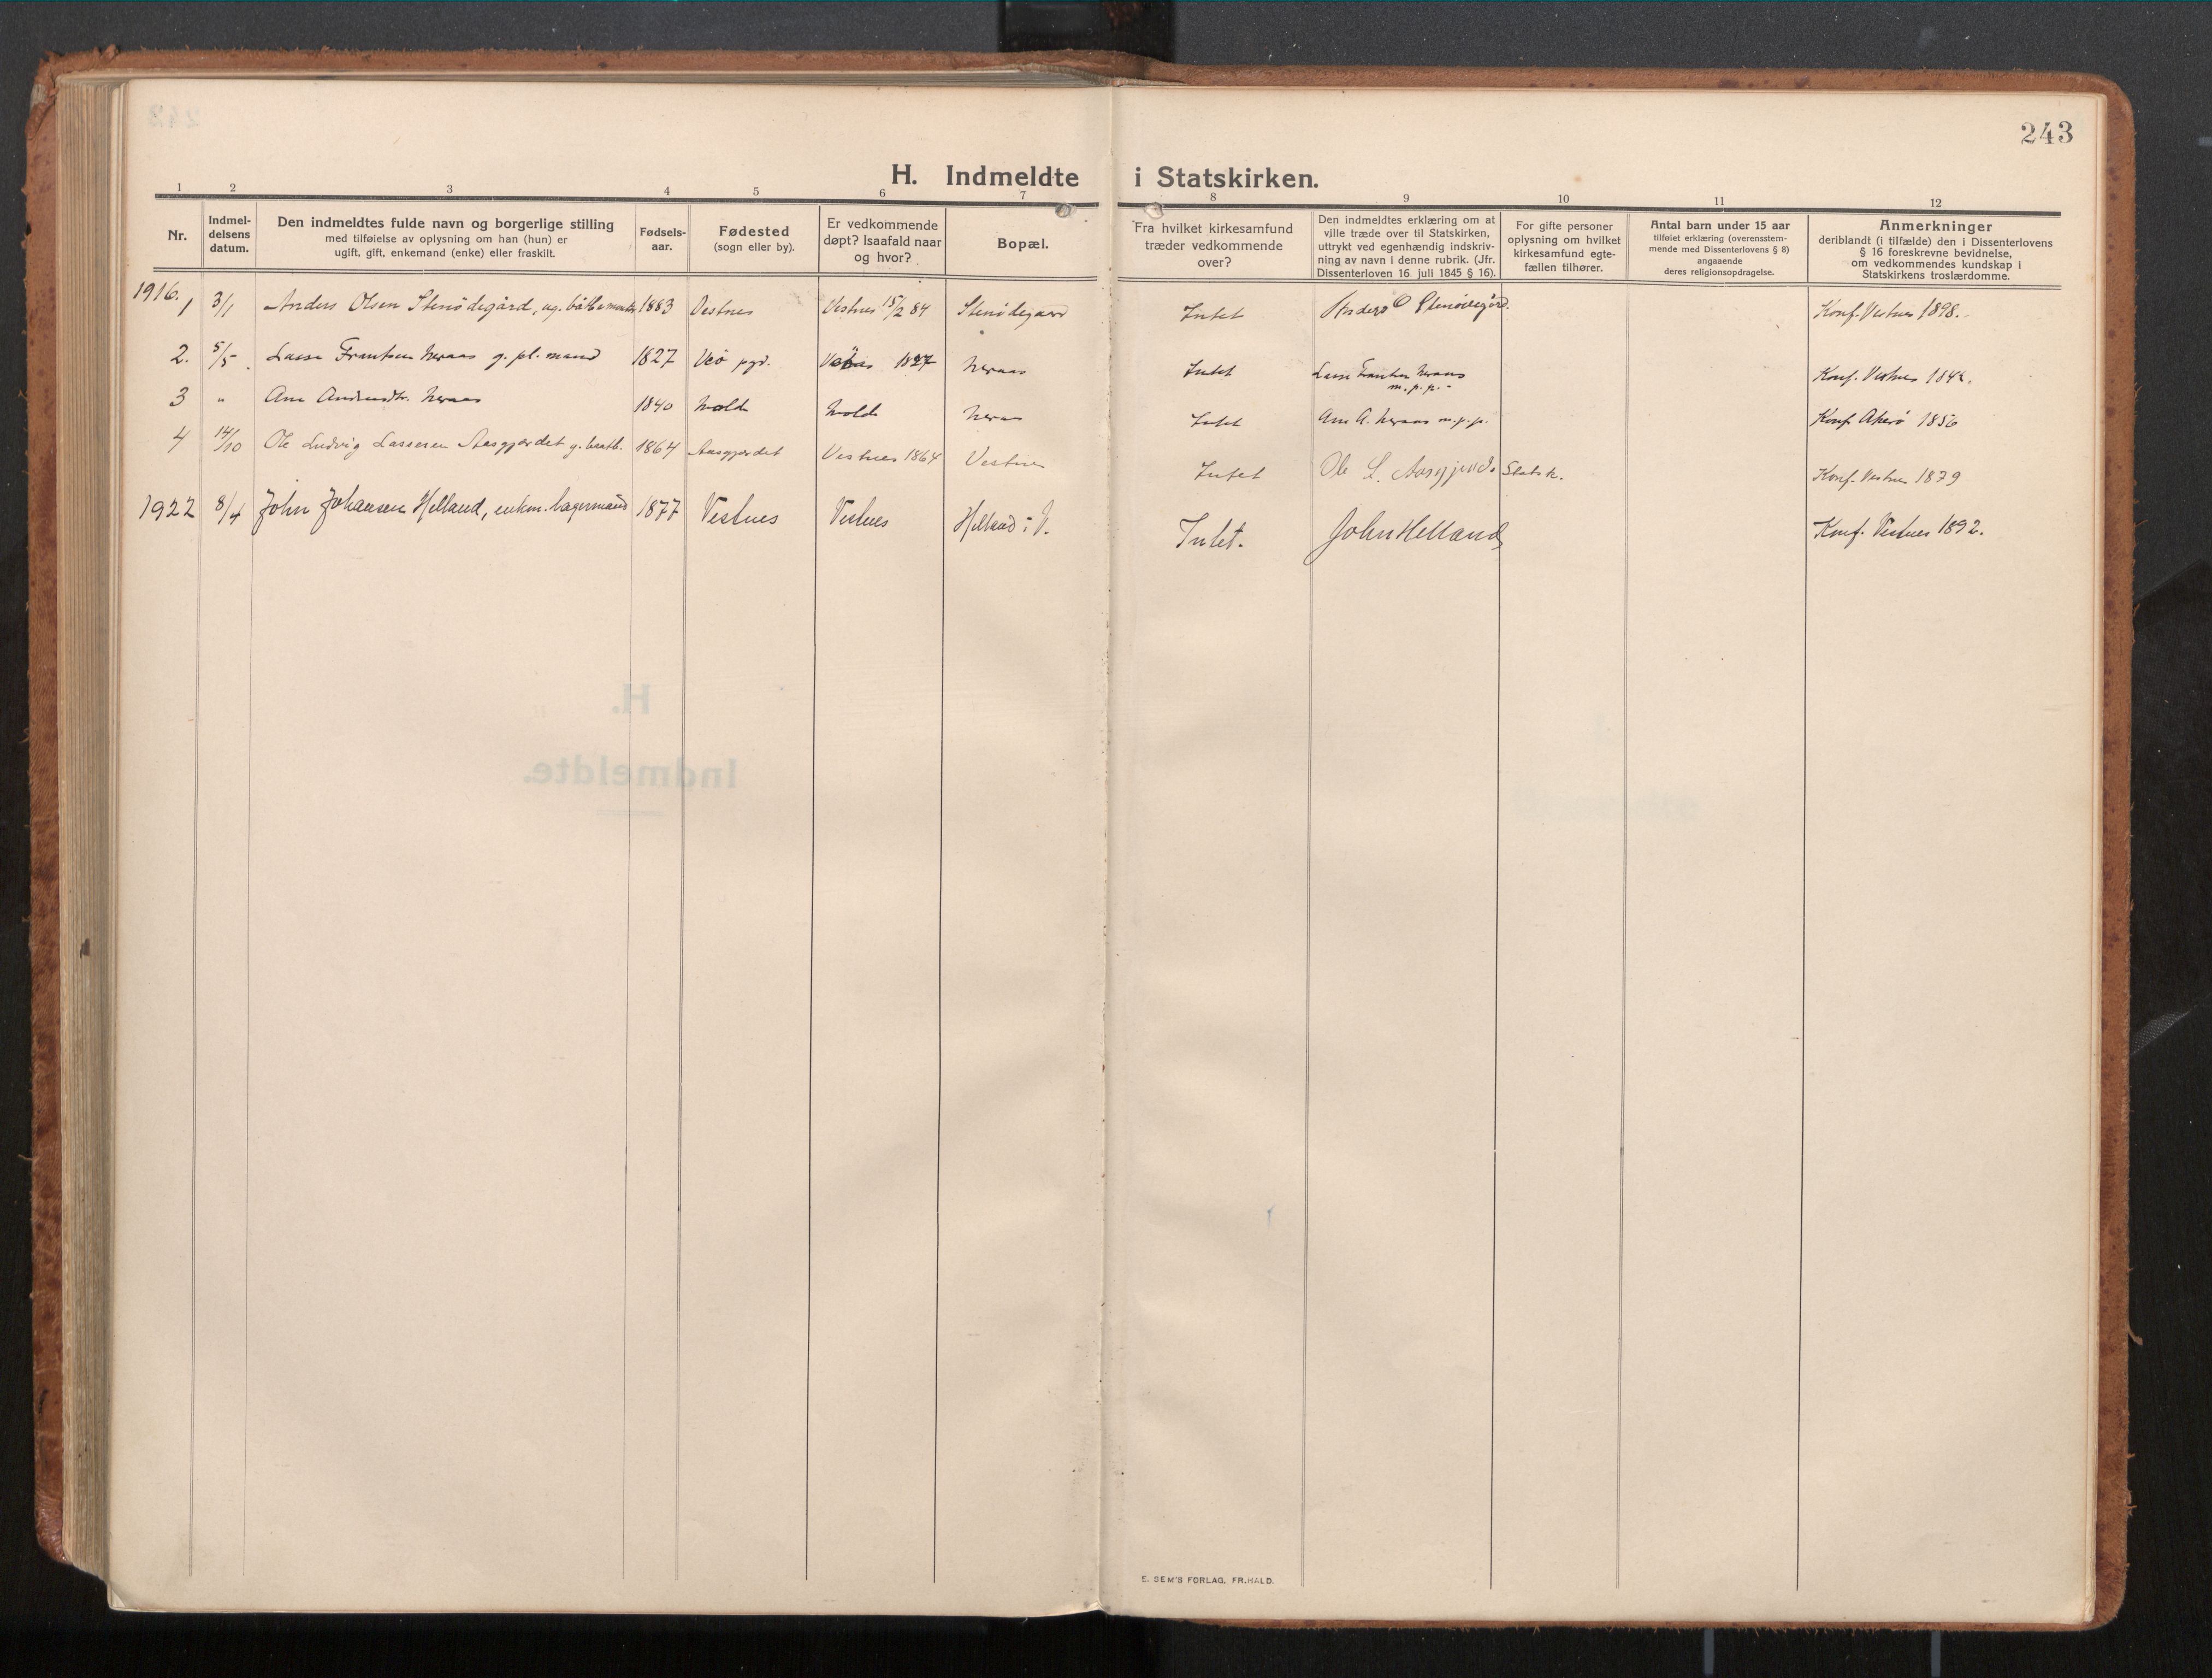 243
H. Indmeldte i Statskirken.
1 2 3 4 5 6 7 8 9 10 11 12
Nr.
Indmel-
delsens
datum.
Den indmeldtes fulde navn og borgerlige stilling
med tilføielse av oplysning om han (hun) er
ugift, gift, enkemand (enke) eller fraskilt.
Fødsels-
aar.
Fødested
(sogn eller by).
Er vedkommende
døpt? Isaafald naar
og hvor?
Bopæl.
Fra hvilket kirkesamfund
træder vedkommende
over?
Den indmeldtes erklæring om at
ville træde over til Statskirken,
uttrykt ved egenhændig indskriv-
ning av navn i denne rubrik. (Jfr.
Dissenterloven 16. juli 1845 § 16).
For gifte personer
oplysning om hvilket
kirkesamfund egte-
fællen tilhører.
Antal barn under 15 aar
tilføiet erklæring (overensstem-
mende med Dissenterlovens § 8)
angaaende
deres religionsopdragelse.
Anmerkninger
deriblandt (i tilfælde) den i Dissenterlovens
§ 16 foreskrevne bevidnelse,
om vedkommendes kundskap i
Statskirkens troslærdomme.
1916. 1 3/1 Anders Olsen Stenødegård, ug. 1883 Vestnes Vestnes 15/2 84 Stenødegaard Intet Anders O Stenødegård. Konf. Vestnes 1898.
2. 5/5 Lasse Frantsen Neraas g. pl. mand 1827 Veø pgd. 1827 Neraas Intet Lasse Frantsen Neraas Konf. Vestnes
m. p. p.
3 " Ane Andersdtr. Neraas 1840 Molde Molde Neraas Intet Ane A. Neraas m. p. p. Konf. Akerø 1856
4 14/10 Ole Ludvig Lassesen Aasgjærdet g. 1864 Aasgjærdet Vestnes 1864 Vestnes Intet Ole L. Aasgjærde Statsk. Konf. Vestnes 1879
1922 8/4 John Johansen Helland, enkem. bagermand 1877 Vestnes Vestnes Helland i V. Intet. John Helland Konf. Vestnes 1892.
E. SEM'S FORLAG, FR.HALD.